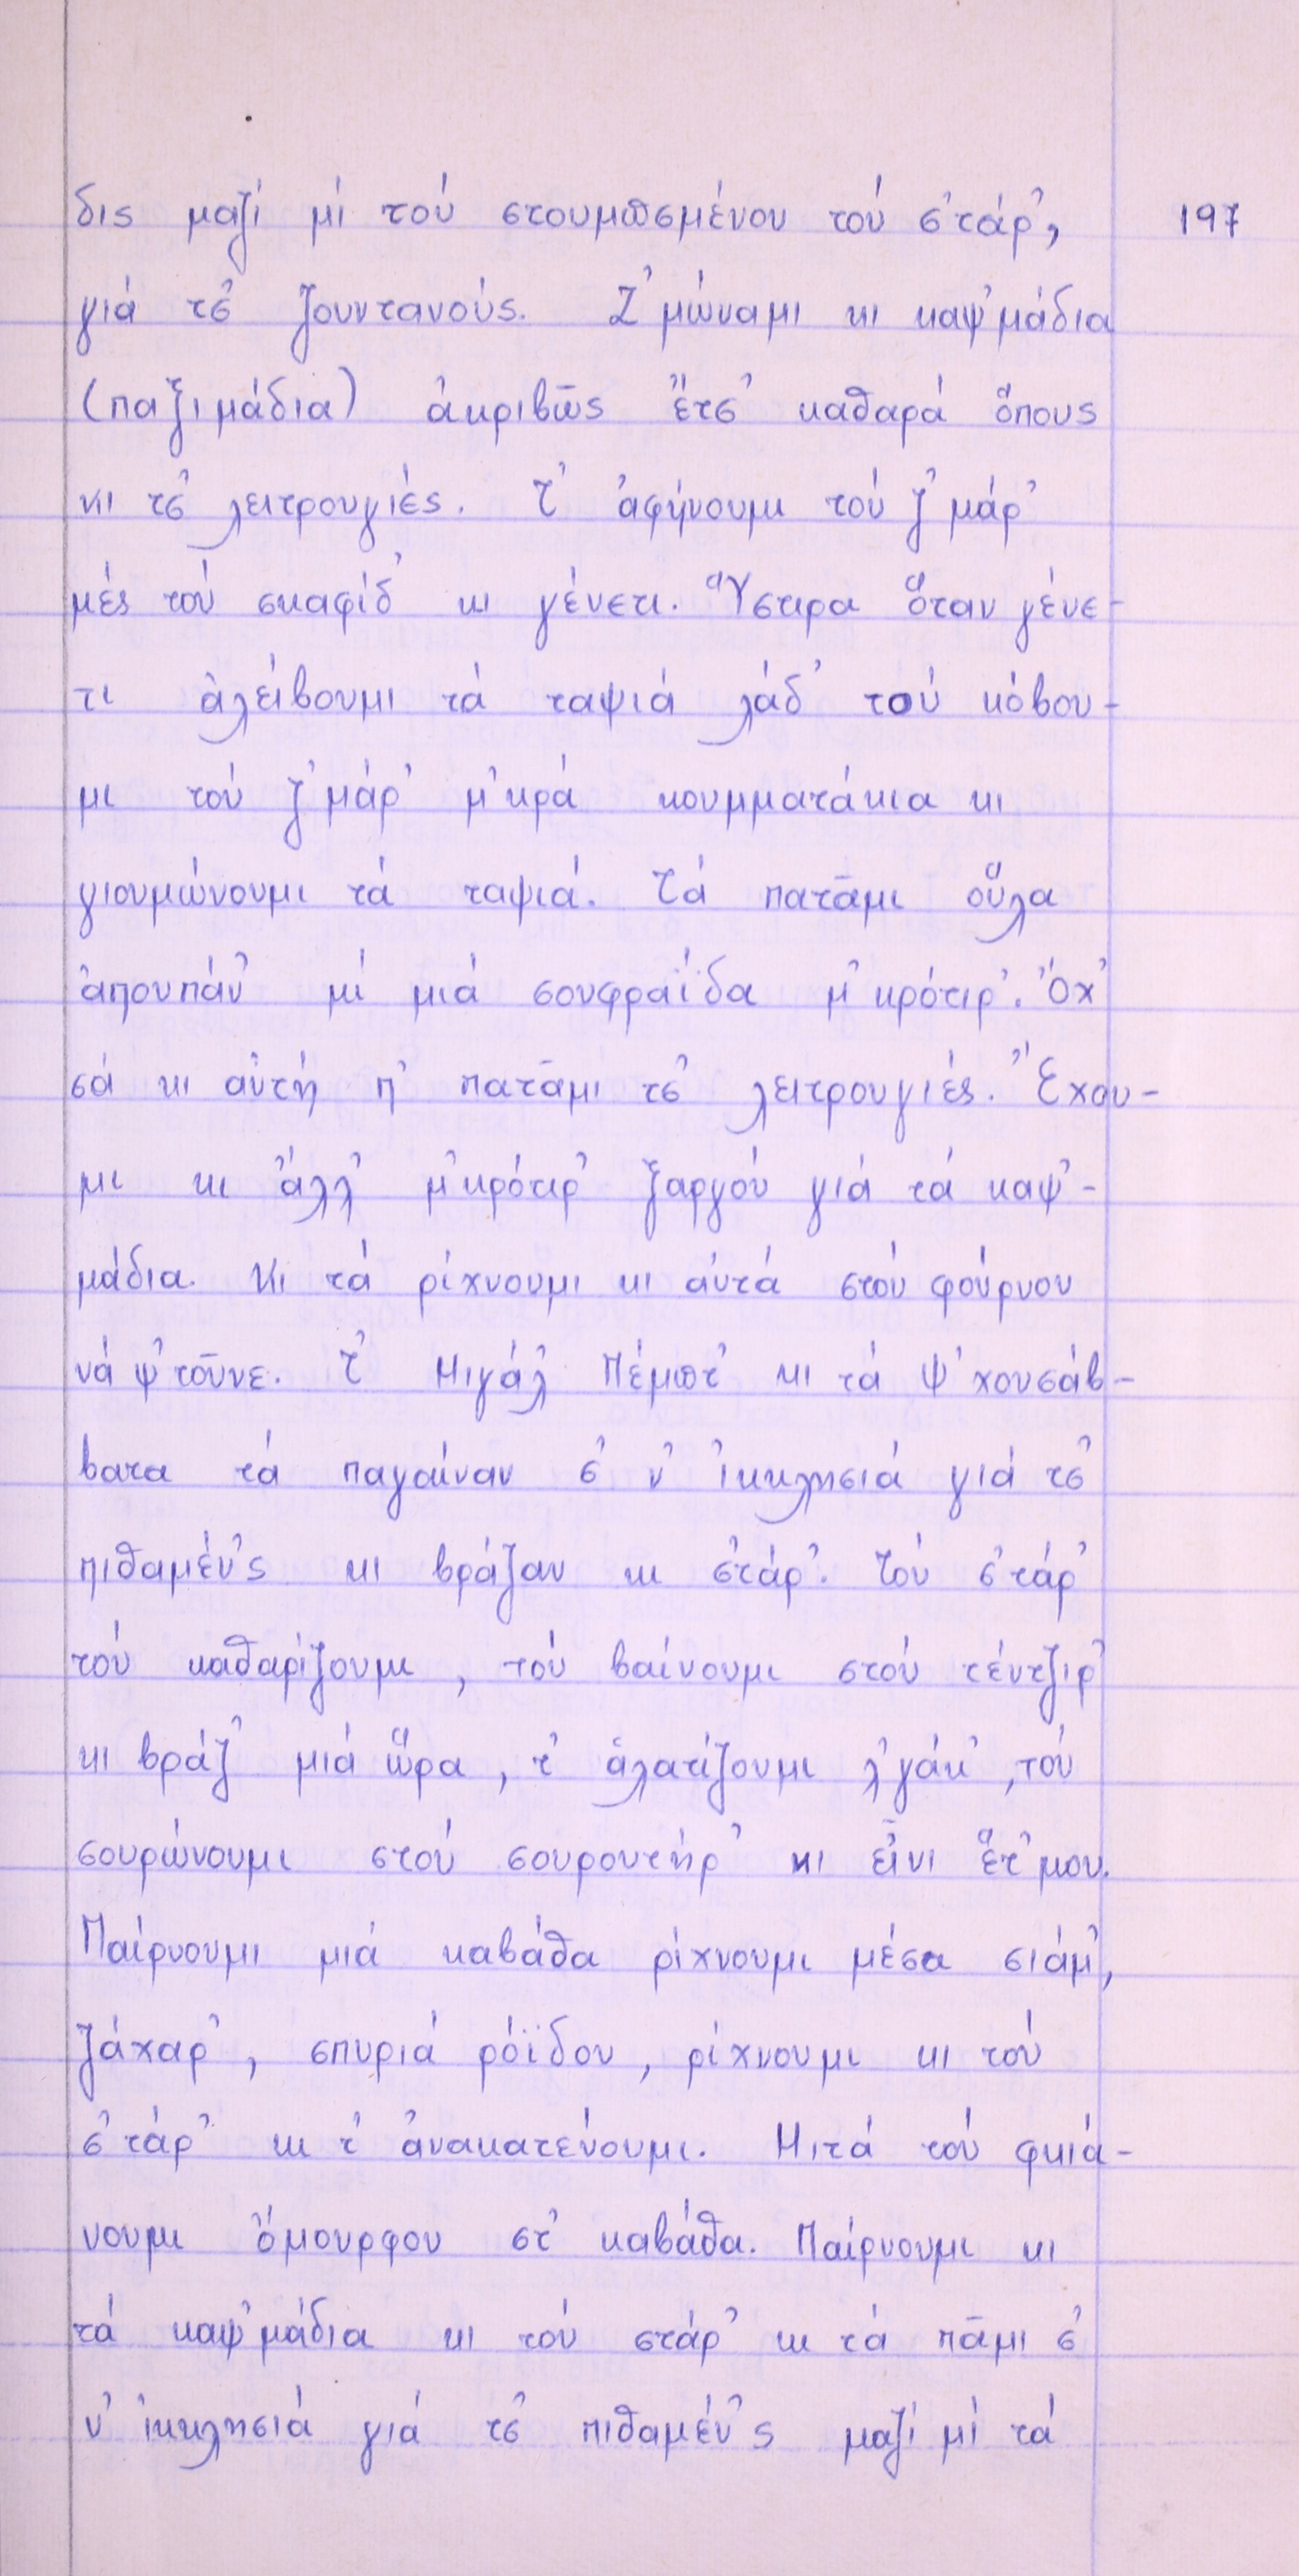 δις μαζί μί τού στουμπσμένου τού σ'τάρ', 197
γιά τσ' ζουντανούς. Ζ'μώναμι κι καψ'μάδια
(παξιμάδια) ἀκριβῶς ἔτσ' καθαρά ὅπους
κι τσ' λειτρουγιές. Τ' ἀφήνουμι τού ζ'μάρ'
μές τού σκαφίδ' κι γένετι. Ὕστιρα ὅταν γένε-
τι ἀλείβουμι τά ταψιά λάδ' τού κόβου-
μι τού ζ'μάρ' μ'κρά κουμματάκια κι
γιουμώνουμι τά ταψιά. Τά πατᾶμι οὕλα
ἀπουπάν' μί μιά σουφραΐδα μ'κρότιρ'. Ὄχ'
σά κι αὐτή π' πατᾶμι τσ' λειτρουγιές. Ἔχου-
μι κι ἄλλ' μ'κρότιρ' ξαργού γιά τά καψ'-
μάδια. Κι τά ρίχνουμι κι αὐτά στού φούρνου
νά ψ'τοῦνε. Τ' Μιγάλ' Πέμπτ' κι τά Ψ'χουσάβ-
βατα τά παγαίναν σ' ν' ἰκκλησιά γιά τσ'
πιθαμέν'ς κι βράζαν κι σ'τάρ'. Τού σ'τάρ'
τού καθαρίζουμι, τού βαίνουμι στού τέντζιρ'
κι βράζ' μιά ὥρα, τ' ἁλατίζουμι λ'γάκ', τού
σουρώνουμι στού σουρουτήρ' κι εἶνι ἕτ'μου.
Παίρνουμι μιά καβάθα ρίχνουμι μέσα σιάμ',
ζάχαρ', σπυριά ρόϊδου, ρίχνουμι κι τού
σ'τάρ' κι τ' ἀνακατεύουμι. Μιτά τού φκιά-
νουμι ὄμουρφου στ' καβάθα. Παίρνουμι κι
τά καψ'μάδια κι τού στάρ' κι τά πᾶμι σ'
ν' ἰκκλησιά γιά τσ' πιθαμέν'ς μαζί μί τά